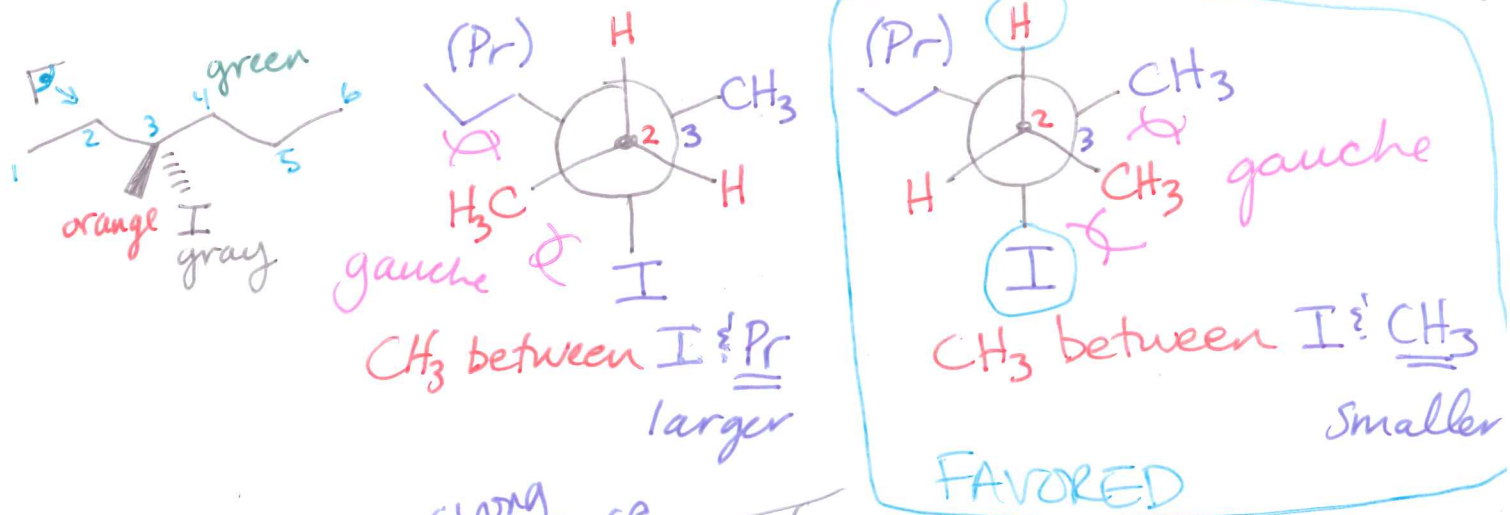 green
1 2 3 4 5 6
orange I
gray
(Pr)
H
CH3
2 3
H3C
H
I
gauche
CH3 between I & Pr
larger
(Pr)
H
CH3
2 3
H
CH3
gauche
I
CH3 between I & CH3
smaller
FAVORED
strong